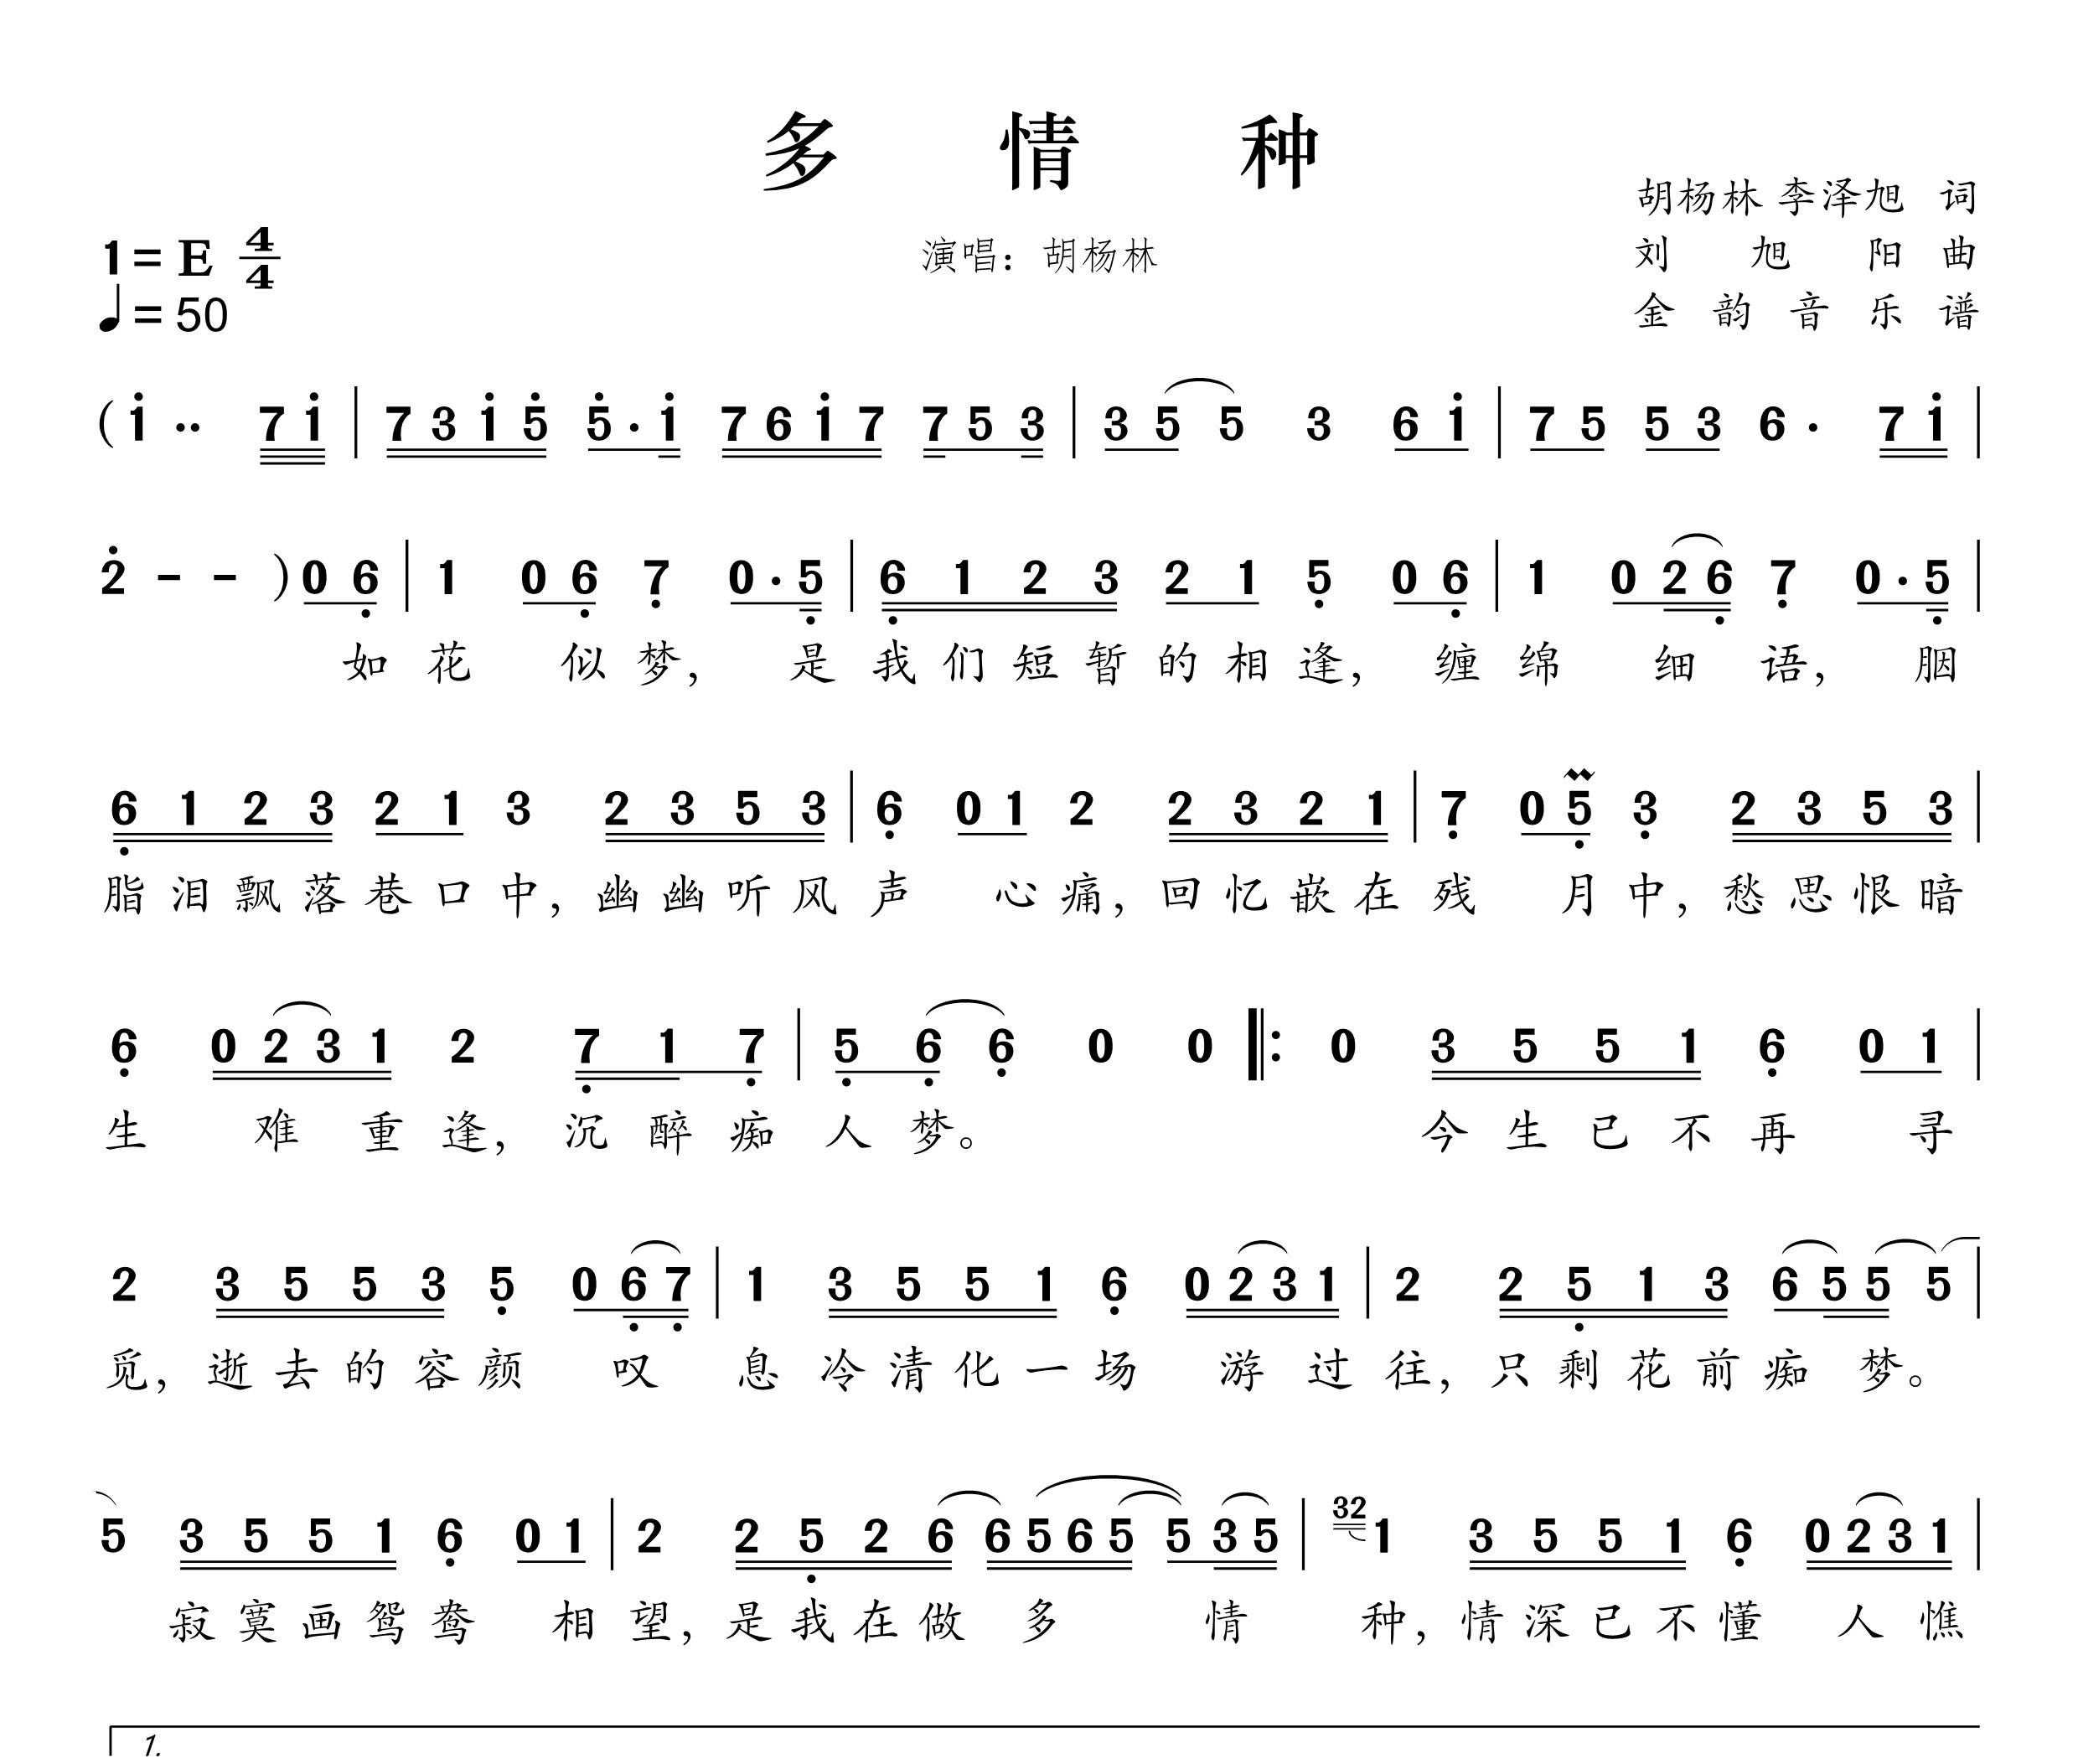 多情种
胡杨林 李泽旭 词
1=E 4/4
演唱：胡杨林
刘旭阳 曲
♩=50
金韵音乐谱
(i·· 7i | 73i5 5·i 76i7 753 | 355 3 6i | 75 53 6· 7i |
2 - - )06 | 1 06 7 0·5 | 6123 21 5 06 | 1 026 7 0·5 |
如花 似梦， 是我们短暂的相逢， 缠绵 细语， 胭
6123 21 3 2353 | 6 01 2 2321 | 7 05 3 2353 |
脂泪飘落巷口中，幽幽听风声 心痛，回忆嵌在残 月中，愁思恨暗
6 0231 2 717 | 566 0 0 |: 0 3551 6 01 |
生 难重逢， 沉醉痴人梦。 今生已不再 寻
2 3553 5 067 | 1 3551 6 0231 | 2 2513 655 5 |
觅，逝去的容颜 叹 息冷清化一场 游过往，只剩花前痴梦。
5 3551 6 01 | 2 2526 6565 535 | 32 1 3551 6 0231 |
寂寞画鸳鸯 相望，是我在做多 情 种，情深已不懂 人憔
1.